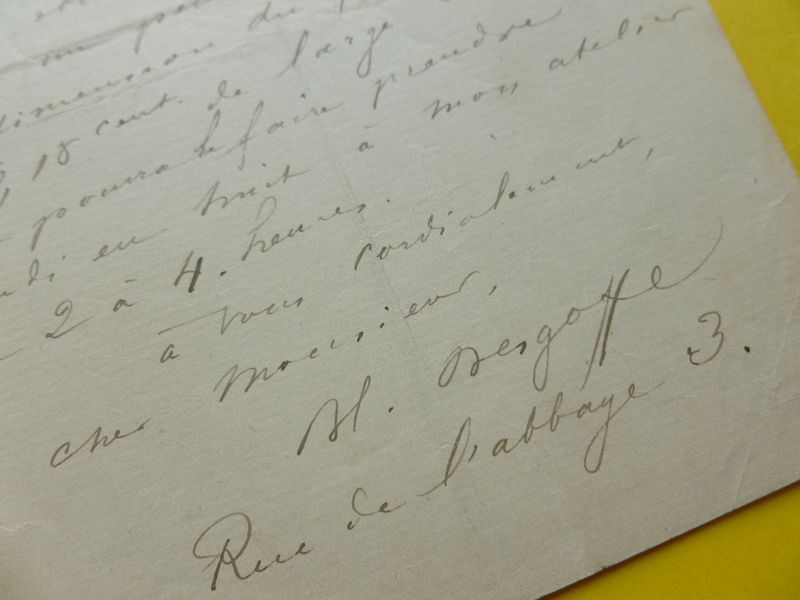 dimension du
18 cent. de large
pourra le faire prendre
en huit à mon atelier
2 à 4. heures.
à vous cordialement,
cher monsieur,
Bl. Desgoffe
Rue de l'abbaye 3.